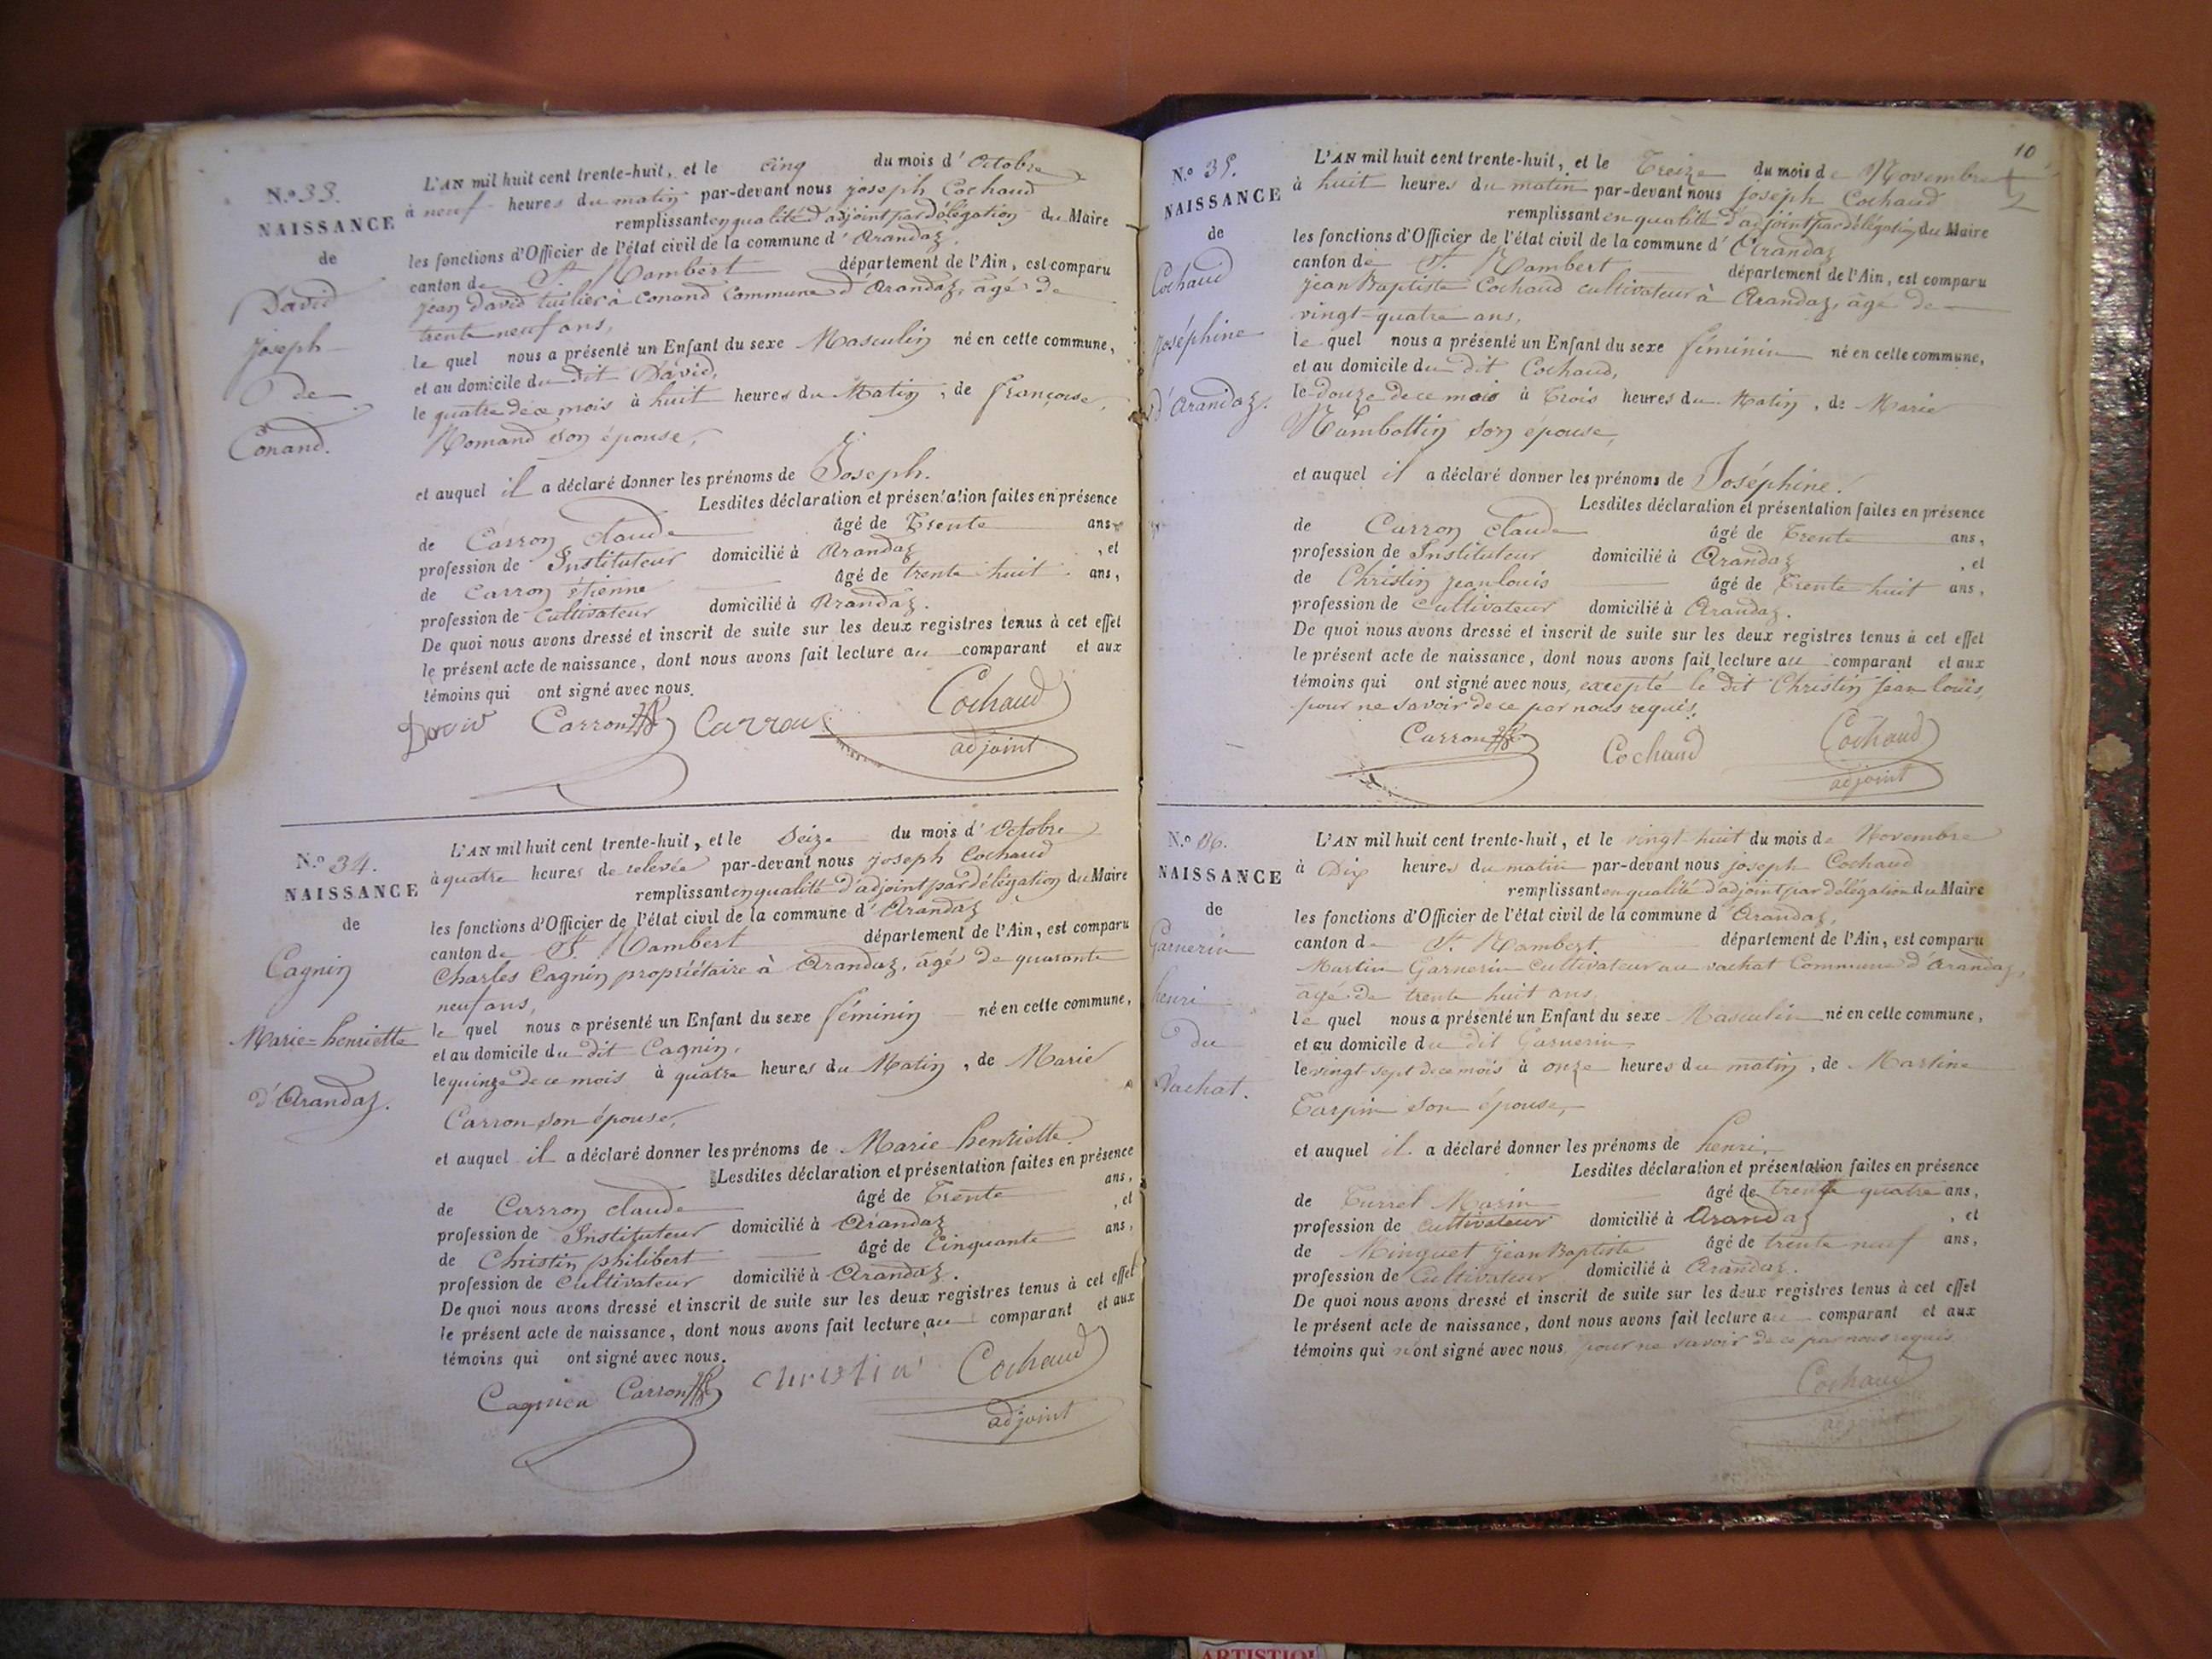 N.º 33.
NAISSANCE
de
David
Joseph
de
Conand.
L'AN mil huit cent trente-huit, et le cinq du mois d'Octobre
à neuf heures du matin par-devant nous joseph Cochaud
remplissant en qualité d'adjoint par délégation du Maire
les fonctions d'Officier de l'état civil de la commune d'Arandaz,
canton de St. Rambert département de l'Ain, est comparu
jean david tuilier à Conand Commune d'Arandaz, âgé de
trente neuf ans,
le quel nous a présenté un Enfant du sexe Masculin né en cette commune,
et au domicile du dit David,
le quatre de ce mois à huit heures du Matin, de françoise
Romand son épouse,
et auquel il a déclaré donner les prénoms de Joseph.
Lesdites déclaration et présentation faites en présence
de Carron claude âgé de Trente ans
profession de Instituteur domicilié à Arandaz, et
de Carron étienne âgé de trente huit ans,
profession de Cultivateur domicilié à Arandaz.
De quoi nous avons dressé et inscrit de suite sur les deux registres tenus à cet effet
le présent acte de naissance, dont nous avons fait lecture au comparant et aux
témoins qui ont signé avec nous.
David Carron Carron Cochaud
adjoint
N.º 34.
NAISSANCE
de
Cagnin
Marie=henriette
d'Arandaz.
L'AN mil huit cent trente-huit, et le Seize du mois d'Octobre
à quatre heures de relevée par-devant nous joseph Cochaud
remplissant en qualité d'adjoint par délégation du Maire
les fonctions d'Officier de l'état civil de la commune d'Arandaz
canton de St. Rambert département de l'Ain, est comparu
Charles Cagnin propriétaire à Arandaz, âgé de quarante
neuf ans,
le quel nous a présenté un Enfant du sexe féminin né en cette commune,
et au domicile du dit Cagnin,
le quinze de ce mois à quatre heures du Matin, de Marie
Carron son épouse,
et auquel il a déclaré donner les prénoms de Marie henriette.
Lesdites déclaration et présentation faites en présence
de Carron claude âgé de Trente ans,
profession de Instituteur domicilié à Arandaz, et
de Christin philibert âgé de Cinquante ans,
profession de Cultivateur domicilié à Arandaz.
De quoi nous avons dressé et inscrit de suite sur les deux registres tenus à cet effet
le présent acte de naissance, dont nous avons fait lecture au comparant et aux
témoins qui ont signé avec nous.
Cagnien Carron christin Cochaud
adjoint
10
N.º 35.
NAISSANCE
de
Cochaud
Joséphine
d'Arandaz.
L'AN mil huit cent trente-huit, et le Treize du mois de Novembre
à huit heures du matin par-devant nous joseph Cochaud
remplissant en qualité d'adjoint par délégation du Maire
les fonctions d'Officier de l'état civil de la commune d'Arandaz
canton de St. Rambert département de l'Ain, est comparu
jean Baptiste Cochaud cultivateur à Arandaz, âgé de
vingt-quatre ans,
le quel nous a présenté un Enfant du sexe féminin né en cette commune,
et au domicile du dit Cochaud,
le douze de ce mois à Trois heures du Matin, de Marie
Rambottin son épouse,
et auquel il a déclaré donner les prénoms de Joséphine.
Lesdites déclaration et présentation faites en présence
de Carron claude âgé de Trente ans,
profession de Instituteur domicilié à Arandaz, et
de Christin jean louis âgé de Trente huit ans,
profession de cultivateur domicilié à Arandaz.
De quoi nous avons dressé et inscrit de suite sur les deux registres tenus à cet effet
le présent acte de naissance, dont nous avons fait lecture au comparant et aux
témoins qui ont signé avec nous, excepté le dit Christin jean louis,
pour ne savoir de ce par nous requis.
Carron Cochaud Cochaud
adjoint
N.º 36.
NAISSANCE
de
Garnerin
henri
du
Vachat.
L'AN mil huit cent trente-huit, et le vingt huit du mois de Novembre
à Dix heures du matin par-devant nous joseph Cochaud
remplissant en qualité d'adjoint par délégation du Maire
les fonctions d'Officier de l'état civil de la commune d'Arandaz,
canton de St. Rambert département de l'Ain, est comparu
Martin Garnerin Cultivateur au vachat Commune d'Arandaz,
âgé de trente huit ans,
le quel nous a présenté un Enfant du sexe Masculin né en cette commune,
et au domicile du dit Garnerin
le vingt sept de ce mois à onze heures du matin, de Martine
Tarpin son épouse,
et auquel il a déclaré donner les prénoms de henri.
Lesdites déclaration et présentation faites en présence
de Turrel Marin âgé de trente quatre ans,
profession de cultivateur domicilié à Arandaz, et
de Minguet jean Baptiste âgé de trente neuf ans,
profession de Cultivateur domicilié à Arandaz.
De quoi nous avons dressé et inscrit de suite sur les deux registres tenus à cet effet
le présent acte de naissance, dont nous avons fait lecture au comparant et aux
témoins qui n'ont signé avec nous, pour ne savoir de ce par nous requis
Cochaud
adjoint